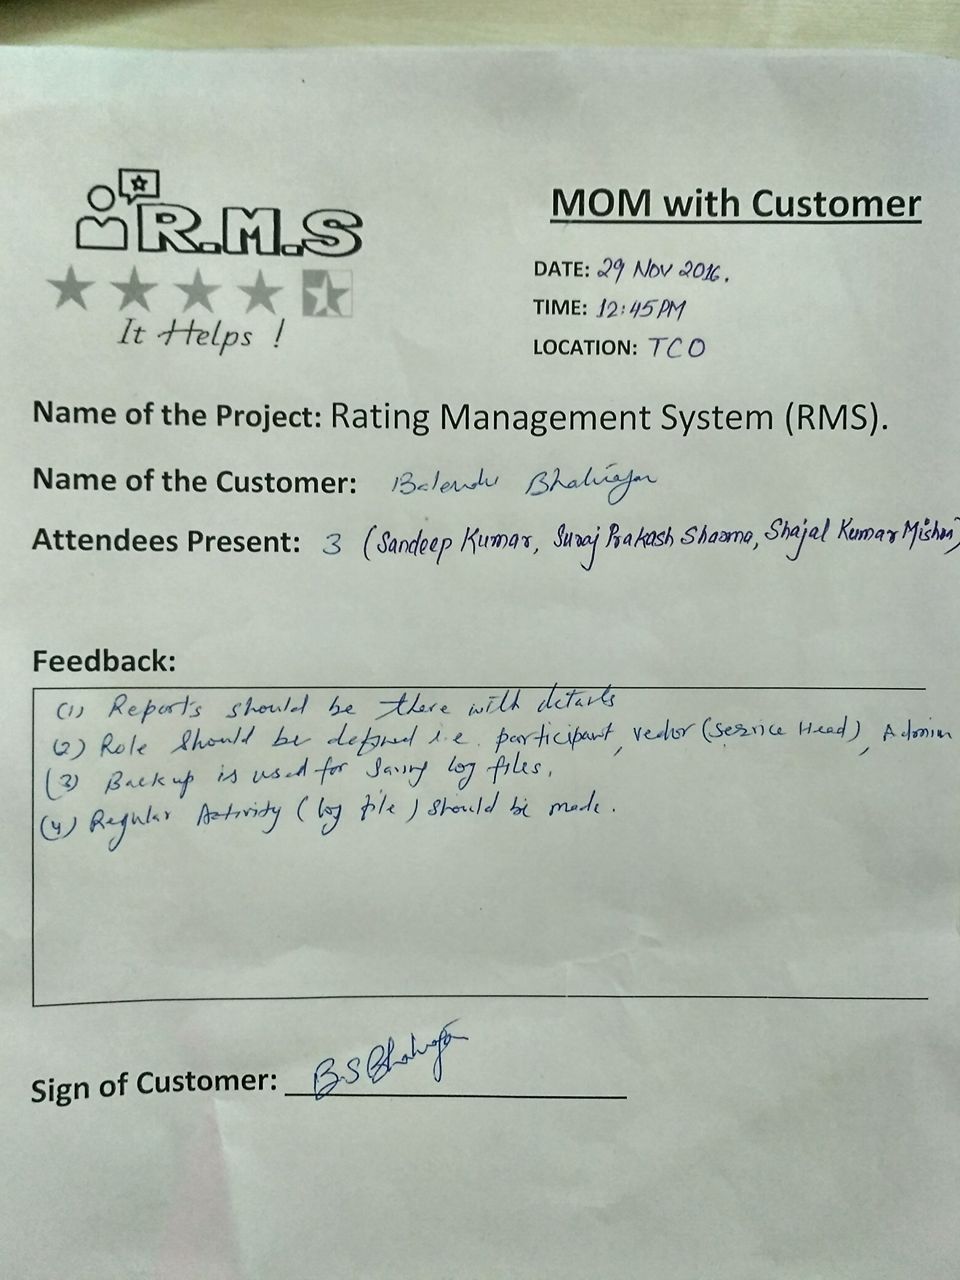 R.M.S
It Helps !
MOM with Customer
DATE: 29 Nov 2016.
TIME: 12:45PM
LOCATION: TCO
Name of the Project: Rating Management System (RMS).
Name of the Customer: Balendu
Attendees Present: 3 (Sandeep Kumar, Suraj Prakash Sharma, Shajal Kumar Mishra)
Feedback:
(1) Reports should be there with details
(2) Role should be defined i.e. participant, vedor (Service Head), Admin
(3) Backup is used for saving log files.
(4) Regular Activity (log file) should be made.
Sign of Customer: